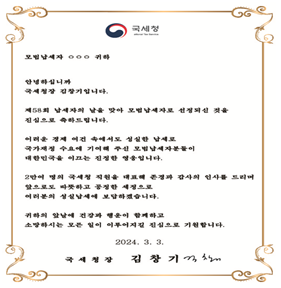 국세청
모범납세자 ○○○ 귀하
안녕하십니까
국세청장 김창기입니다.
제58회 납세자의 날을 맞아 모범납세자로 선정되신 것을
진심으로 축하드립니다.
어려운 경제 여건 속에서도 성실한 납세로
국가재정 수요에 기여해 주신 모범납세자분들이
대한민국을 이끄는 진정한 영웅입니다.
2만여 명의 국세청 직원을 대표해 존경과 감사의 인사를 드리며
앞으로도 따뜻하고 공정한 세정으로
여러분의 성실납세에 보답하겠습니다.
귀하의 앞날에 건강과 행운이 함께하고
소망하시는 모든 일이 이루어지길 진심으로 기원합니다.
2024. 3. 3.
국세청장 김창기